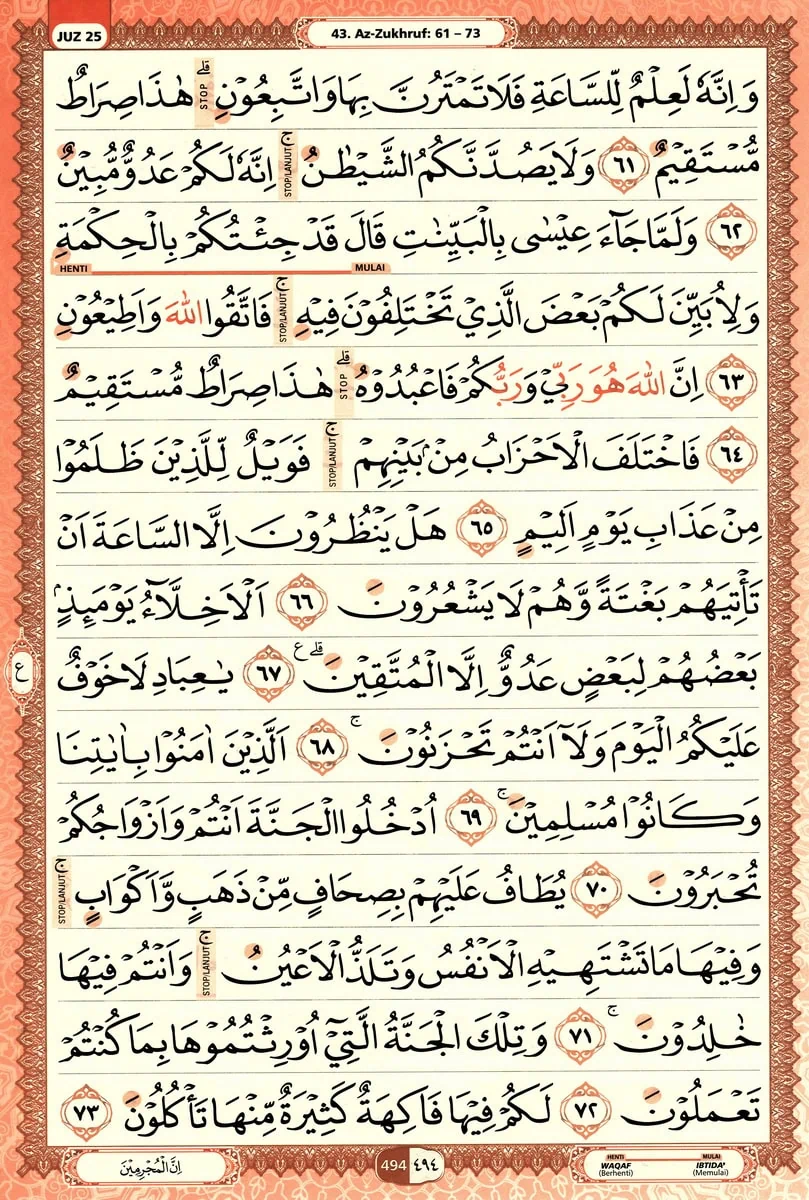 JUZ 25
43. Az-Zukhruf: 61 – 73
وَاِنَّهٗ لَعِلْمٌ لِّلسَّاعَةِ فَلَا تَمْتَرُنَّ بِهَا وَاتَّبِعُوْنِۗ STOP هٰذَا صِرَاطٌ
مُّسْتَقِيْمٌ ٦١ وَلَا يَصُدَّنَّكُمُ الشَّيْطٰنُۚ STOP/LANJUT اِنَّهٗ لَكُمْ عَدُوٌّ مُّبِيْنٌ
٦٢ وَلَمَّا جَاۤءَ عِيْسٰى بِالْبَيِّنٰتِ قَالَ قَدْ جِئْتُكُمْ بِالْحِكْمَةِ
HENTI MULAI
وَلِاُبَيِّنَ لَكُمْ بَعْضَ الَّذِيْ تَخْتَلِفُوْنَ فِيْهِۚ STOP/LANJUT فَاتَّقُوا اللّٰهَ وَاَطِيْعُوْنِ
٦٣ اِنَّ اللّٰهَ هُوَ رَبِّيْ وَرَبُّكُمْ فَاعْبُدُوْهُۗ STOP هٰذَا صِرَاطٌ مُّسْتَقِيْمٌ
٦٤ فَاخْتَلَفَ الْاَحْزَابُ مِنْۢ بَيْنِهِمْۚ STOP/LANJUT فَوَيْلٌ لِّلَّذِيْنَ ظَلَمُوْا
مِنْ عَذَابِ يَوْمٍ اَلِيْمٍ ٦٥ هَلْ يَنْظُرُوْنَ اِلَّا السَّاعَةَ اَنْ
تَأْتِيَهُمْ بَغْتَةً وَّهُمْ لَا يَشْعُرُوْنَ ٦٦ اَلْاَخِلَّاۤءُ يَوْمَىِٕذٍۢ
بَعْضُهُمْ لِبَعْضٍ عَدُوٌّ اِلَّا الْمُتَّقِيْنَ ۗ ع ٦٧ يٰعِبَادِ لَا خَوْفٌ
عَلَيْكُمُ الْيَوْمَ وَلَآ اَنْتُمْ تَحْزَنُوْنَۚ ٦٨ اَلَّذِيْنَ اٰمَنُوْا بِاٰيٰتِنَا
وَكَانُوْا مُسْلِمِيْنَۚ ٦٩ اُدْخُلُوا الْجَنَّةَ اَنْتُمْ وَاَزْوَاجُكُمْ
تُحْبَرُوْنَ ٧٠ يُطَافُ عَلَيْهِمْ بِصِحَافٍ مِّنْ ذَهَبٍ وَّاَكْوَابٍۚ STOP/LANJUT
وَفِيْهَا مَا تَشْتَهِيْهِ الْاَنْفُسُ وَتَلَذُّ الْاَعْيُنُۚ STOP/LANJUT وَاَنْتُمْ فِيْهَا
خٰلِدُوْنَۚ ٧١ وَتِلْكَ الْجَنَّةُ الَّتِيْٓ اُوْرِثْتُمُوْهَا بِمَا كُنْتُمْ
تَعْمَلُوْنَ ٧٢ لَكُمْ فِيْهَا فَاكِهَةٌ كَثِيْرَةٌ مِّنْهَا تَأْكُلُوْنَ ٧٣
ع
اِنَّ الْمُجْرِمِيْنَ
494 ٤٩٤
HENTI MULAI
WAQAF IBTIDA'
(Berhenti) (Memulai)